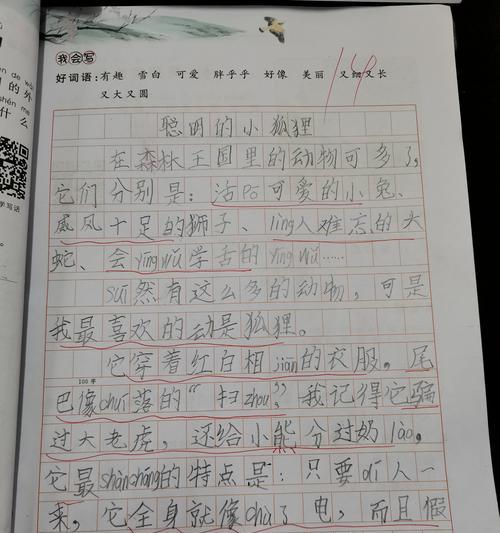 我会写
好词语：有趣 雪白 可爱 胖乎乎 好像 美丽 又细又长
又大又圆
聪明的小狐狸
在森林王国里的动物可多了，
它们分别是：活pō可爱的小兔、
威风十足的狮子、lìng人难忘的大
蛇、会yīng wǔ学舌的yīng wǔ……
suī然有这么多的动物，可是
我最喜欢的动是狐狸。
它穿着红白相jiàn的衣服。尾
100字
巴像chuí落的“扫zhou”，我记得它骗
过大老虎，还给小熊分过奶lào，
它最shàn cháng的特点是：只要dí人一
来，它全身就像chù了电，而且假